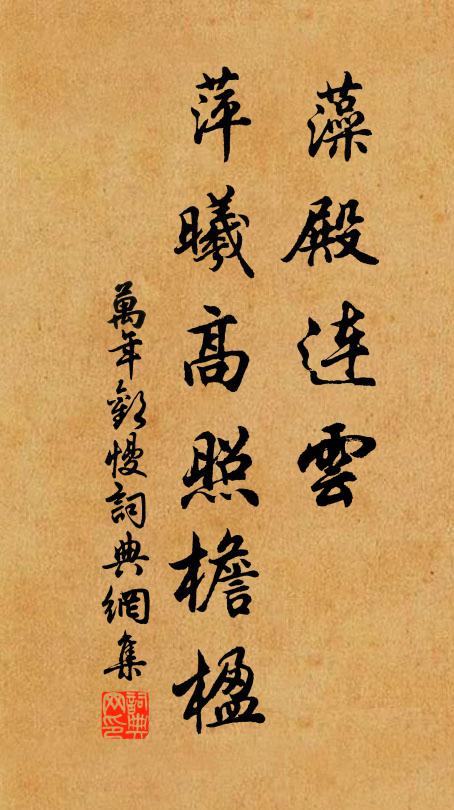 藻殿連雲
萍曦高照檐楹
萬年歡慢詞典網集
詞典网印